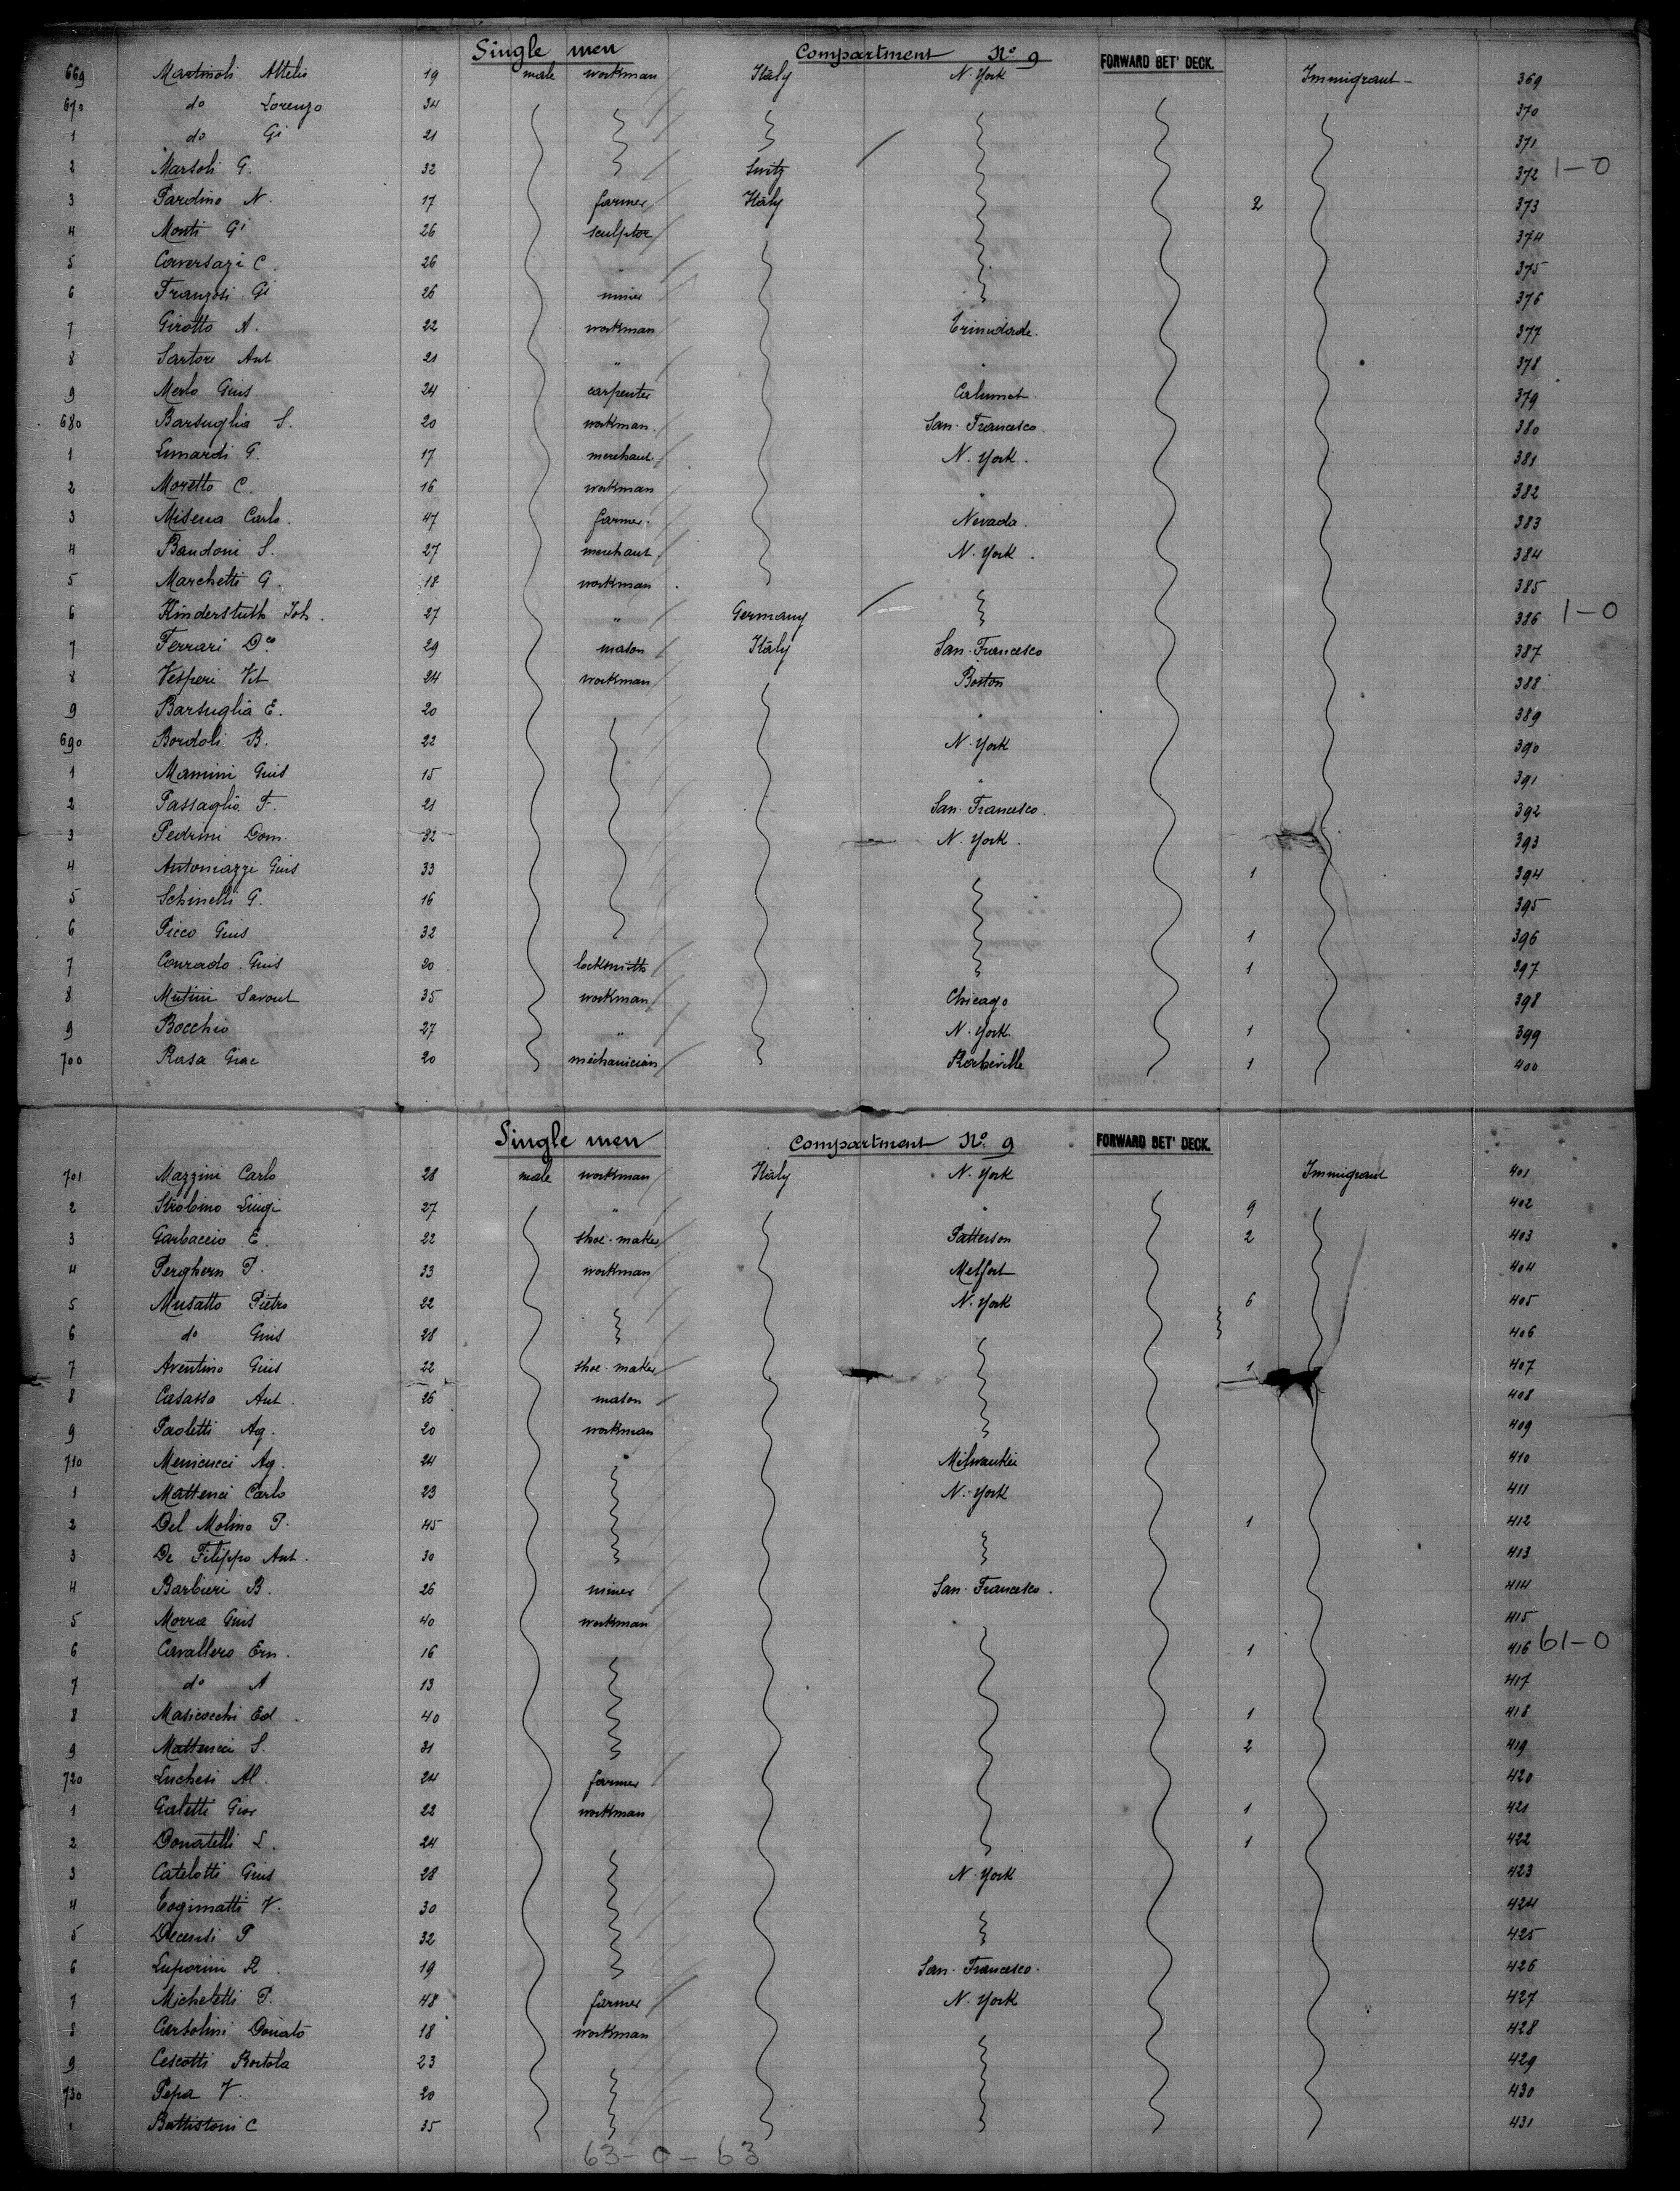 Single men Compartment No. 9 FORWARD BET' DECK.
669 Martinoli Attelio 19 male workman Italy N. York Immigrant 369
670 do Lorenzo 34 370
1 do Gi 21 371
2 Marsoli G. 32 Switz 372 1-0
3 Pardino N. 17 farmer Italy 2 373
4 Monti Gi 26 sculptor 374
5 Conversazi C. 26 375
6 Franzosi Gi 26 miner 376
7 Girotto A. 22 workman 377
8 Sartore Ant 21 " " 378
9 Merlo Gius 24 carpenter Calumet 379
680 Barsuglia S. 20 workman San Francesco 380
1 Lunardi G. 17 merchant N. York 381
2 Moretto C. 16 workman " 382
3 Misena Carlo 47 farmer Nevada 383
4 Bandoni S. 27 merchant N. York 384
5 Marchetti G. 18 workman 385
6 Kinderstuth Joh. 27 " Germany 386 1-0
7 Ferrari Dco 29 mason Italy San Francesco 387
8 Vesperi Vit 24 workman Boston 388
9 Barsuglia E. 20 " 389
690 Bordoli B. 22 N. York 390
1 Mamini Gius 15 " 391
2 Passaglia F. 21 San Francesco 392
3 Pedrini Dom. 32 N. York 393
4 Antoniazzi Gius 33 1 394
5 Schinelli G. 16 395
6 Picco Gius 32 1 396
7 Conrado Gius 20 locksmith 1 397
8 Mutini 35 workman Chicago 398
9 Bocchio 27 " N. York 1 399
700 Rosa Giac 20 mechanician 1 400
Single men Compartment No. 9 FORWARD BET' DECK.
701 Mazzini Carlo 28 male workman Italy N. York Immigrant 401
2 Strobino Luigi 27 " " 9 402
3 Garbaccio E. 22 shoe-maker Patterson 2 403
4 Perghern P. 33 workman Melfort 404
5 Musatto Pietro 22 N. York 6 405
6 do Gius 28 406
7 Aventino Gius 22 shoe-maker 1 407
8 Casassa Ant. 26 mason 408
9 Paoletti Ag. 20 workman 409
710 Menicucci Ag. 24 Milwaukie 410
1 Matteuci Carlo 23 N. York 411
2 Del Molino P. 45 1 412
3 De Filippo Ant. 30 413
4 Barbieri B. 26 miner San Francesco 414
5 Morra Gius 40 workman 415
6 Cavallero Ern. 16 1 416 61-0
7 do A 13 417
8 Masicocchi Ed 40 1 418
9 Matteucci S. 31 2 419
720 Luchesi Al. 24 farmer 420
1 Galetti Giov 22 workman 1 421
2 Donatelli L. 24 1 422
3 Catelotti Gius 28 N. York 423
4 Togimatti V. 30 424
5 Decensi P 32 425
6 Luporini R 19 San Francesco 426
7 Micheletti P. 48 farmer N. York 427
8 Carsolini Donato 18 workman 428
9 Cescotti Bortola 23 429
730 Pepa V. 20 430
1 Battistoni C 35 431
63-0-63